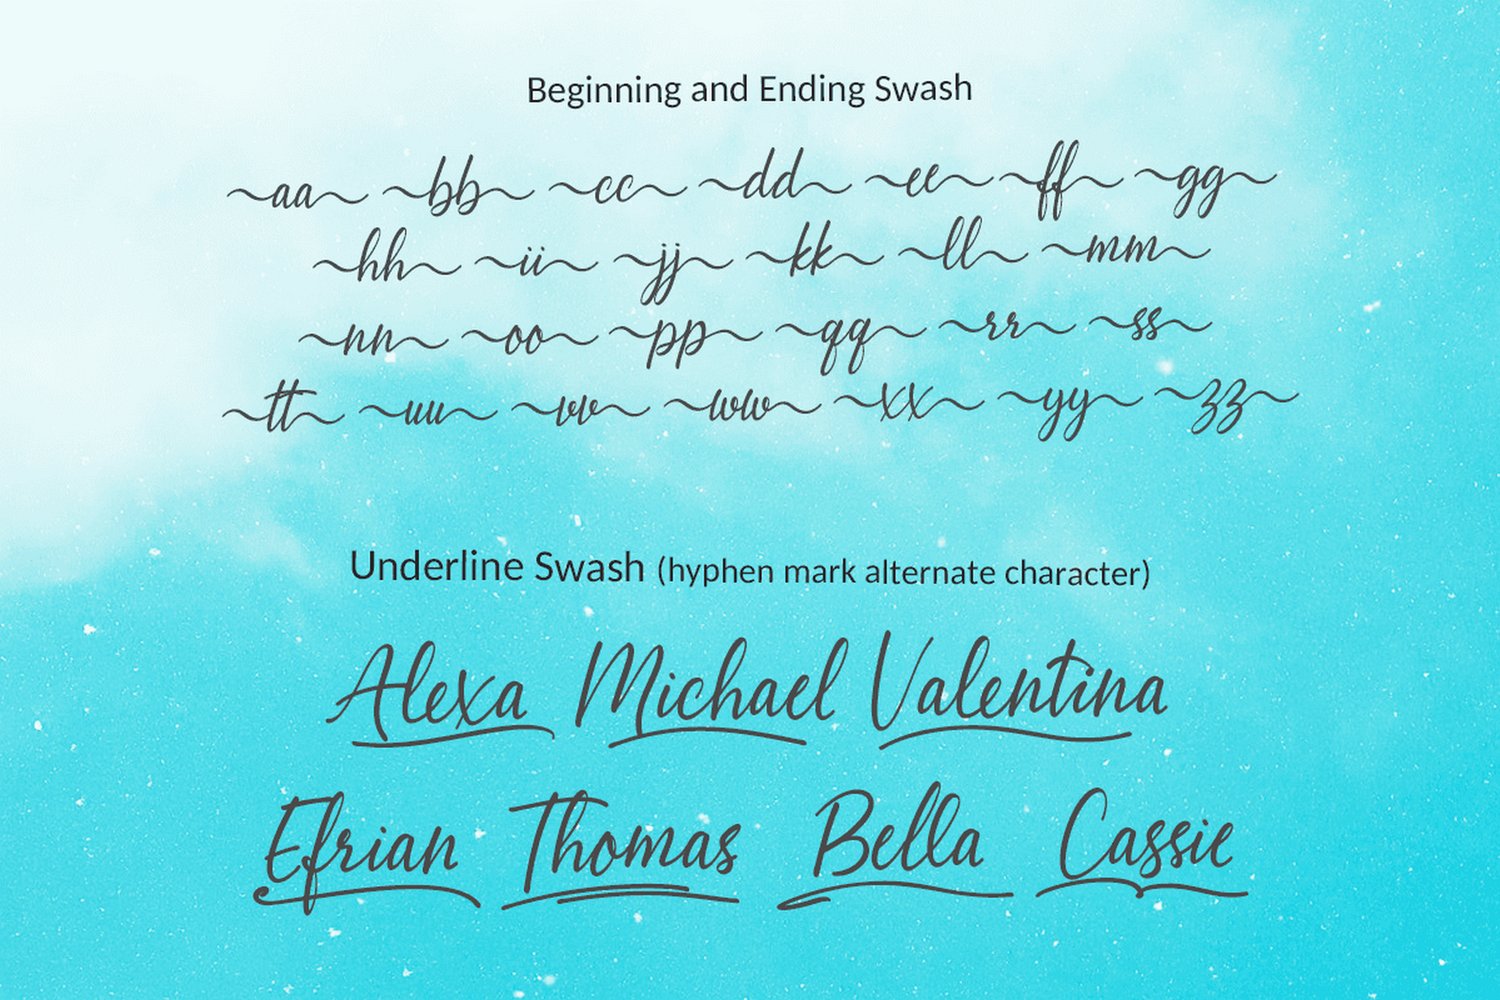 Beginning and Ending Swash
aa bb cc dd ee ff gg
hh ii jj kk ll mm
nn oo pp qq rr ss
tt uu vv ww xx yy zz
Underline Swash (hyphen mark alternate character)
Alexa Michael Valentina
Efrian Thomas Bella Cassie